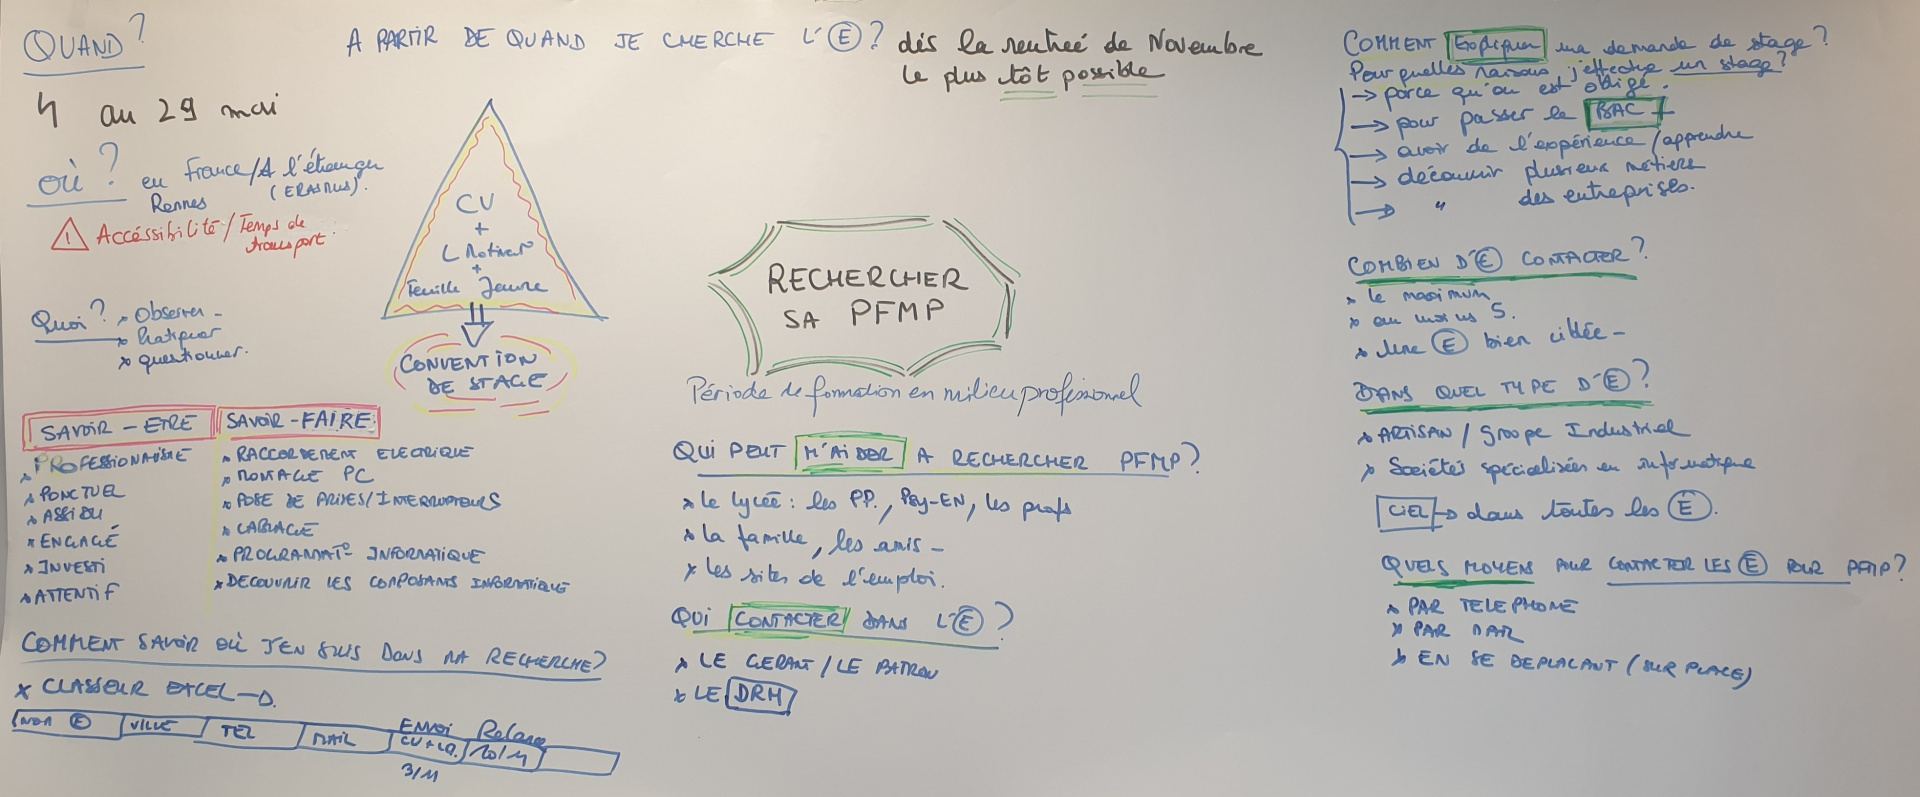 QUAND?
4 au 29 mai
où? en France/A l'étranger
(ERASMUS).
Rennes
! Accéssibilité/Temps de
transport.
Quoi? x Observer -
x Pratiquer
x questionner.
A PARTIR DE QUAND JE CHERCHE L'Ⓔ? dès la rentreé de Novembre
le plus tôt possible
CV
+
L Motivat°
+
Feuille Jaune
CONVENTION
DE STAGE
SAVOIR - ETRE
x PROFESSIONALISME
x PONCTUEL
x ASSIDU
x ENGAGÉ
x INVESTI
x ATTENTIF
SAVOIR-FAIRE
x RACCORDEMENT ELECTRIQUE
x MONTAGE PC
x POSE DE PRISES/INTERRUPTEURS
x CABLAGE
x PROGRAMMAT° INFORMATIQUE
x DECOUVRIR LES COMPOSANTS INFORMATIQUE
COMMENT SAVOIR OÙ J'EN SUIS DANS MA RECHERCHE?
x CLASSEUR EXCEL
NOM Ⓔ VILLE TEL MAIL Envoi CV + LM Relance 10/11
3/11
RECHERCHER
SA PFMP
Période de formation en milieu professionnel
QUI PEUT M'AIDER A RECHERCHER PFMP?
x le lycée : les PP., Psy-EN, les profs
x la famille, les amis -
x les sites de l'emploi.
QUI CONTACTER DANS L'Ⓔ?
x LE GERANT/LE PATRON
x LE DRH
COMMENT Expliquer ma demande de stage?
Pour quelles raisons j'effectue un stage?
→ parce qu'on est obligé.
→ pour passer le BAC
→ avoir de l'expérience/apprendre
→ découvrir plusieurs métiers
→ " des entreprises.
COMBIEN D'Ⓔ CONTACTER?
x le maximum
x au moins 5.
x Une Ⓔ bien ciblée -
DANS QUEL TYPE D'Ⓔ?
x ARTISAN / Groupe Industriel
x Sociétés spécialisées en informatique
CIEL → dans toutes les Ⓔ.
QUELS MOYENS POUR CONTACTER LES Ⓔ POUR PFMP?
x PAR TELEPHONE
x PAR MAIL
x EN SE DEPLACANT (SUR PLACE)